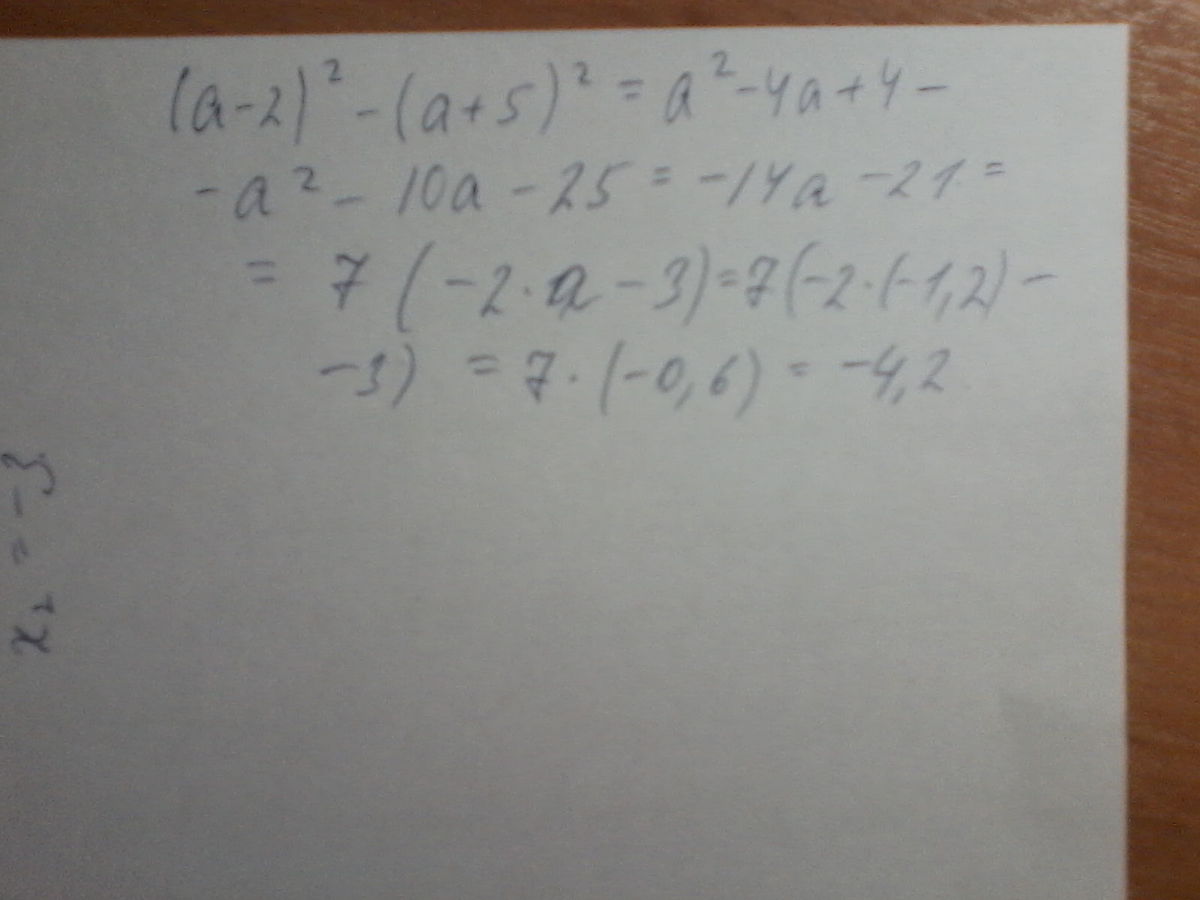 (a-2)² - (a+5)² = a² - 4a + 4 -
- a² - 10a - 25 = -14a - 21 =
= 7 (-2·a - 3) = 7(-2·(-1,2) -
-3) = 7·(-0,6) = -4,2
x₂ = -3